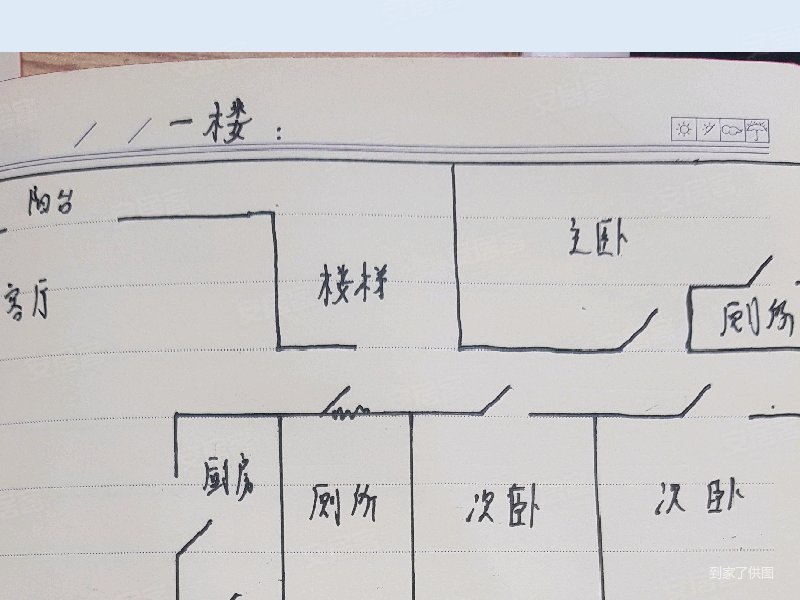 一楼：
阳台
主卧
客厅
楼梯
厕所
厨房
厕所
次卧
次卧
到家了供图